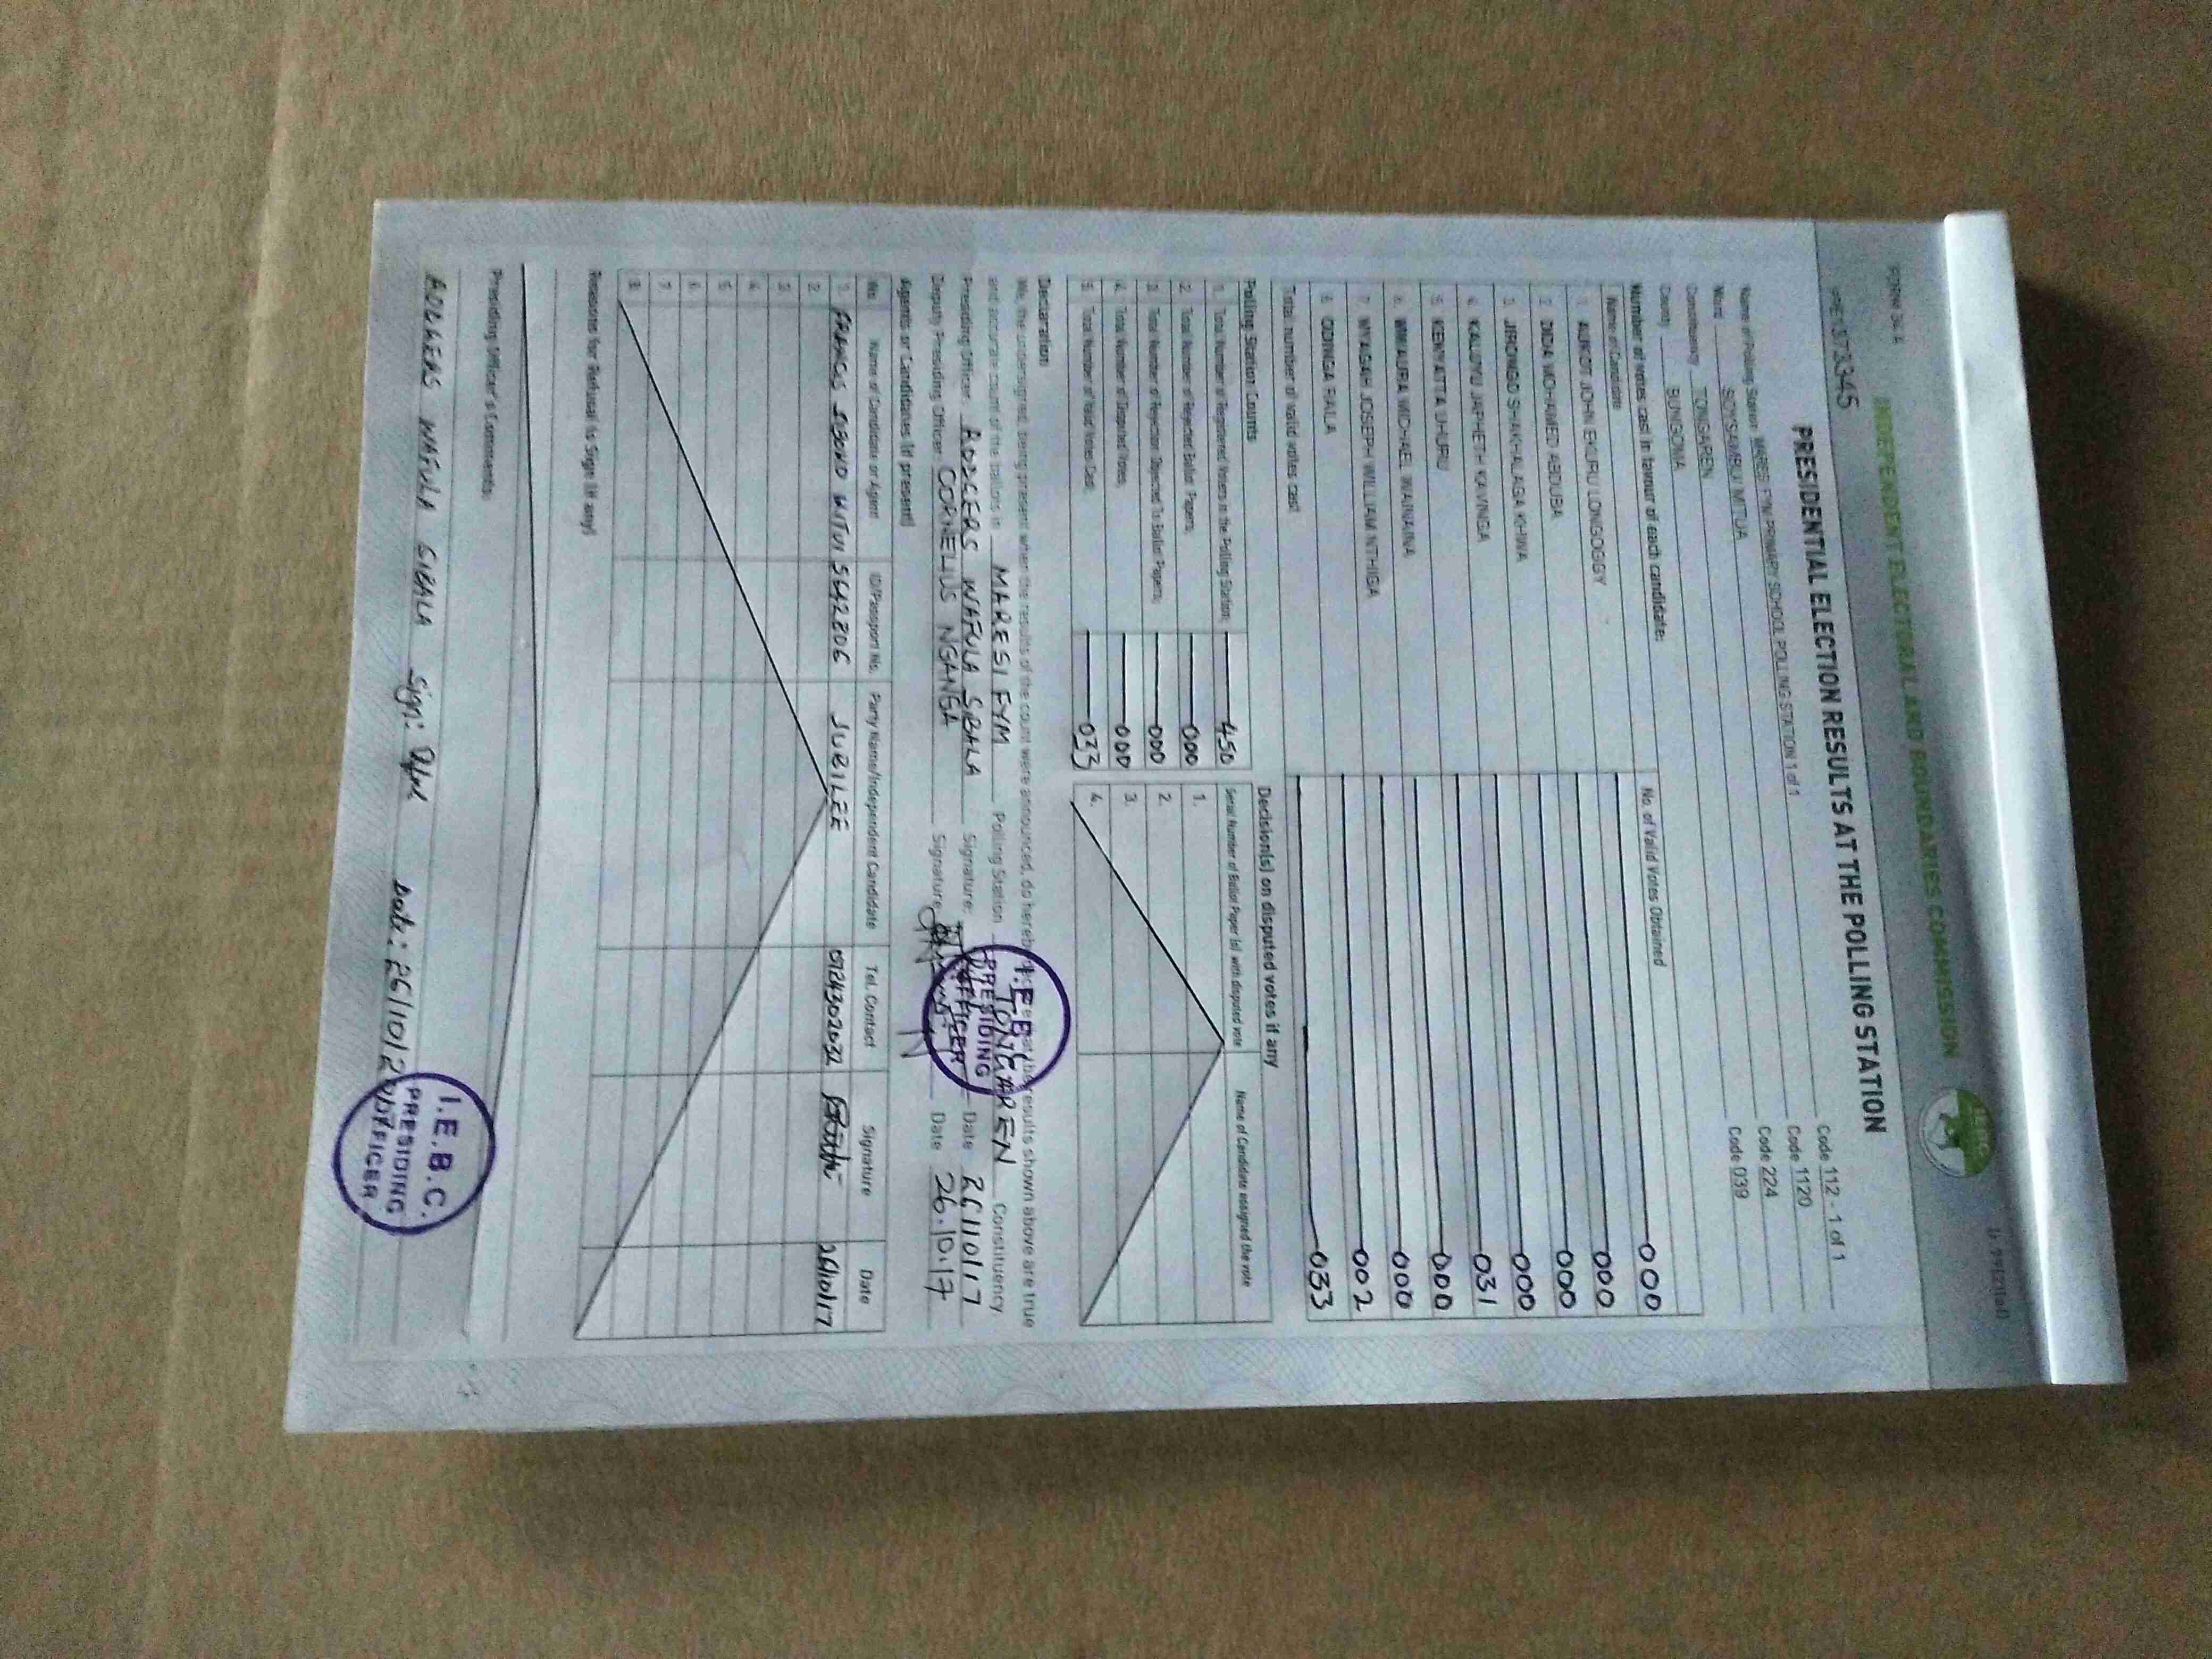 FORM 34 A
INDEPENDENT ELECTORAL AND BOUNDARIES COMMISSION
PRESIDENTIAL ELECTION RESULTS AT THE POLLING STATION
Name of Polling Station MARESI FYM PRIMARY SCHOOL POLLING STATION 1 of 1 Code 112 - 1 of 1
Ward SOYSAMBU/ MITUA Code 1120
Constituency TONGAREN Code 224
County BUNGOMA Code 039
Number of votes cast in favour of each candidate:
Name of Candidate No. of Valid Votes Obtained
1. AUKOT JOHN EKURU LONGOGGY 000
2. DIDA MOHAMED ABDUBA 000
3. JIRONGO SHAKHALAGA KHWA 000
4. KALUYU JAPHETH KAVINGA 000
5. KENYATTA UHURU 031
6. MWAURA MICHAEL WAINAINA 000
7. NYAGAH JOSEPH WILLIAM NTHIGA 000
8. ODINGA RAILA 002
Total number of valid votes cast 033
Polling Station Counts
1. Total Number of Registered Voters in the Polling Station: 450
2. Total Number of Rejected Ballot Papers: 000
3. Total Number of Rejection Objected To Ballot Papers: 000
4. Total Number of Disputed Votes: 000
5. Total Number of Valid Votes Cast: 033
Decision(s) on disputed votes if any
Serial Number of Ballot Paper (s) with disputed vote Name of Candidate assigned the vote
1.
2.
3.
4.
Declaration
We, the undersigned, being present when the results of the count were announced, do hereby the results shown above are true
and accurate count of the ballots in MARESI FYM Polling Station TONGAREN Constituency.
Presiding Officer RODGERS WAFULA SIBALA Signature: Date 26/10/17
Deputy Presiding Officer CORNELIUS NGANGA Signature Date 26.10.17
I.E.B.C.
PRESIDING
OFFICER
Agents or Candidates (if present)
No Name of Candidate or Agent ID/Passport No. Party Name/Independent Candidate Tel. Contact Signature Date
1. FRANCIS WITUI 5642806 JUBILEE 0724302032 26/10/17
2
3
4
5
6
7
8
Reasons for Refusal to Sign (if any)
Presiding Officer's Comments:
RODGERS WAFULA SIBALA Sign: Date: 26/10/2017
I.E.B.C.
PRESIDING
OFFICER